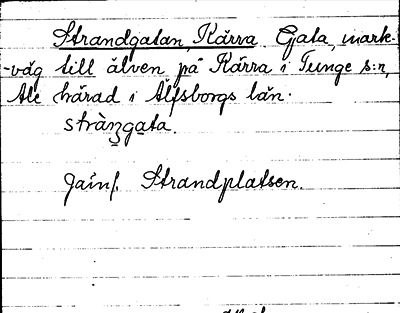 Strandgatan, Kärra. Gata, mark-
-väg till älven på Kärra i Tunge s:n,
Ale härad i Älfsborgs län.
stràngata.
Jämf. Strandplatsen.